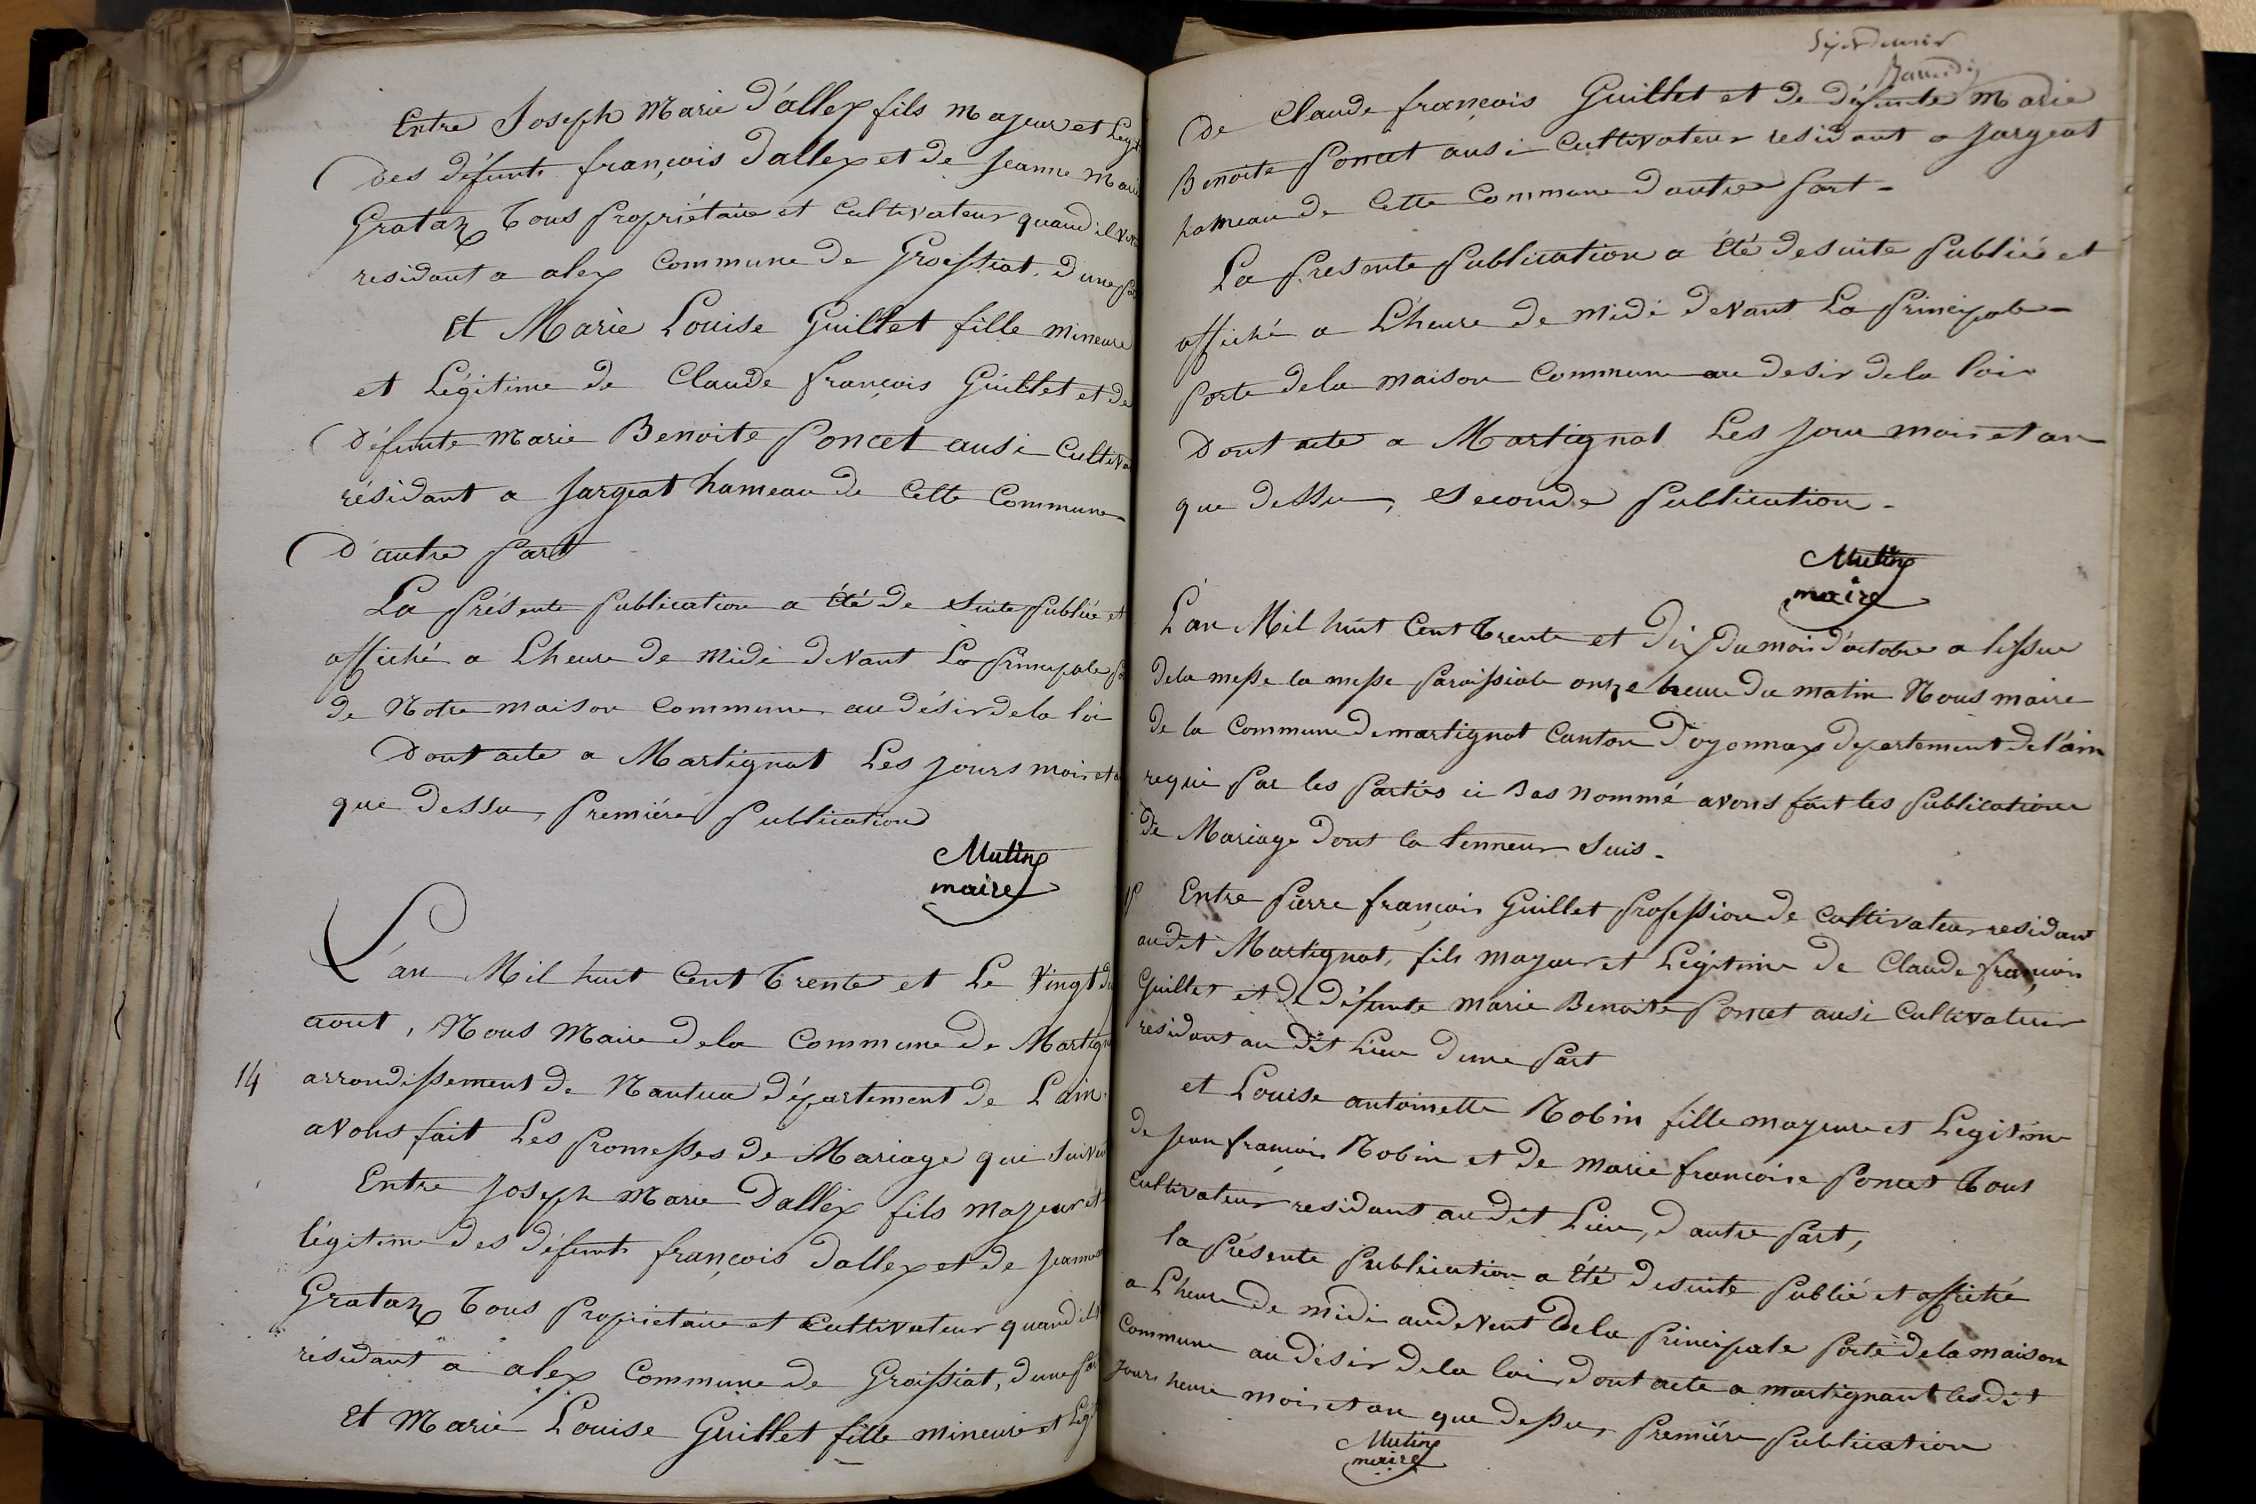 Entre Joseph Marie d'allex fils majeur et Legit
des défunts françois dallex et de jeanne Marie
Grataz tous propriétaire et cultivateur quand il viv
residant a alex commune de Groissiat, d'une par
et Marie Louise Guillet fille mineure
et Légitime de Claude françois Guillet et de
défunte Marie Benoite Poncet ausi cultiva
résidant a jargeat hameau de cette commune
d'autre part
La présente publication a été de suite publiée et
affiché a L'heure de midi devant La principale po
de Notre maison commune au désir de la loi
dont acte a Martignat Les jours mois et a
que dessu, première publication
Mutin
maire
L'an Mil huit cent trente et Le vingt du
aout, Nous Maire de la commune de Martign
14 arrondissement de Nantua département de L'ain
avons fait Les promesses de Mariage que suiven
Entre joseph Marie Dallex fils majeur et
légitime des défunts françois dallex et de jeanne
Grataz tous propriétaire et cultivateur quand il
résidant a alex commune de Groissiat, d'une par
et Marie Louise Guillet fille mineure et Legit
de Claude françois Guillet et de défunte Marie
Benoite Poncet ausi cultivateur residant a jargeat
hameau de cette commune d'autre part
La presente publication a été de suite publiée et
affiché a L'heure de midi devant La principale
porte de la maison commune au desir de la loi
dont acte a Martignat Les jour mois et an
que dessu, seconde publication
Mutin
maire
L'an Mil huit cent trente et dix du mois d'octobre a lissue
de la messe la messe paroissiale onze heure du matin Nous maire
de la commune de martignat canton d'oyonnax departement de l'ain
requi par les parties ci bas nommé avons fait les publication
de Mariage dont la tenneur suis
Entre pierre françois Guillet profession de cultivateur residant
audit Martignat, fils majeur et Légitime de Claude françois
Guillet et de défunte marie Benoite Poncet ausi cultivateur
residant au dit Lieu d'une part
et Louise antoinette Robin fille majeure et Legitime
de jean françois Robin et de marie françoise Poncet tous
cultivateur residant au dit Lieu, d'autre part,
la présente publication a été de suite publié et affiché
a L'heure de midi au devent de la principale porte de la maison
commune au désir de la loi, dont acte a martignant lesdit
jours heure mois et an que dessu, première publication
Mutin
maire